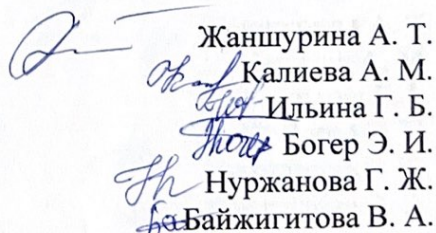 Жаншурина А. Т.
Калиева А. М.
Ильина Г. Б.
Богер Э. И.
Нуржанова Г. Ж.
Байжигитова В. А.